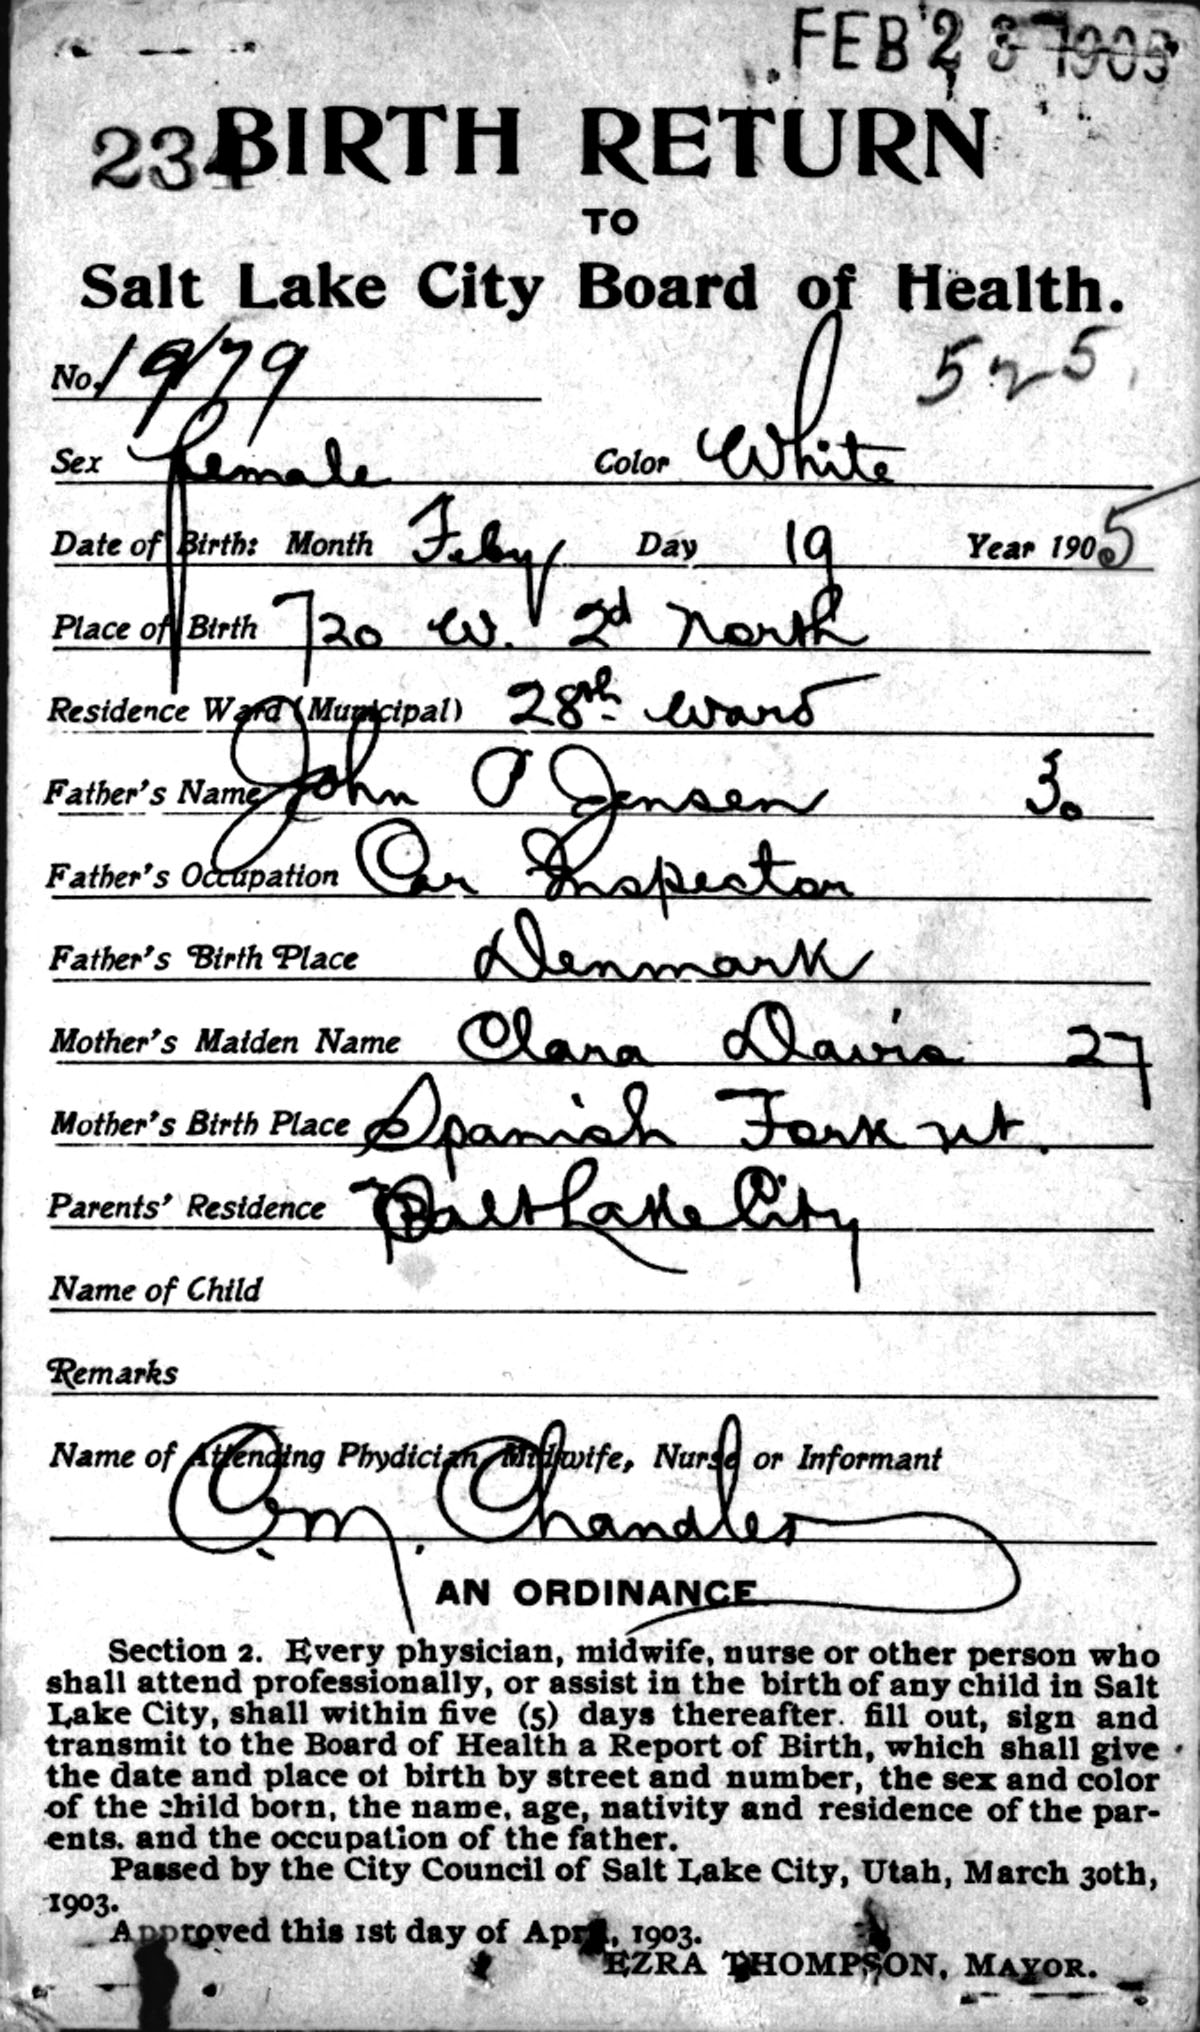 FEB 23 1905
234 BIRTH RETURN
TO
Salt Lake City Board of Health.
No. 1979 525
Sex female Color White
Date of Birth: Month Feby Day 19 Year 1905
Place of Birth 720 W. 2d North
Residence Ward (Municipal) 28th ward
Father's Name John P Jensen 30
Father's Occupation Car Inspector
Father's Birth Place Denmark
Mother's Maiden Name Clara Davis 27
Mother's Birth Place Spanish Fork Ut.
Parents' Residence Salt Lake City
Name of Child
Remarks
Name of Attending Phydician, Midwife, Nurse or Informant
C. M. Chandler
AN ORDINANCE
Section 2. Every physician, midwife, nurse or other person who
shall attend professionally, or assist in the birth of any child in Salt
Lake City, shall within five (5) days thereafter. fill out, sign and
transmit to the Board of Health a Report of Birth, which shall give
the date and place of birth by street and number, the sex and color
of the child born, the name, age, nativity and residence of the par-
ents. and the occupation of the father.
Passed by the City Council of Salt Lake City, Utah, March 30th,
1903.
Approved this 1st day of April, 1903.
EZRA THOMPSON, MAYOR.